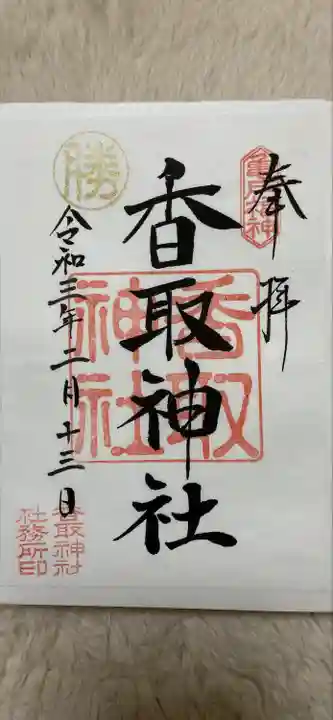 奉拝
亀戸総鎮守
香取神社
香取神社
勝
令和三年二月十三日
香取神社
社務所印